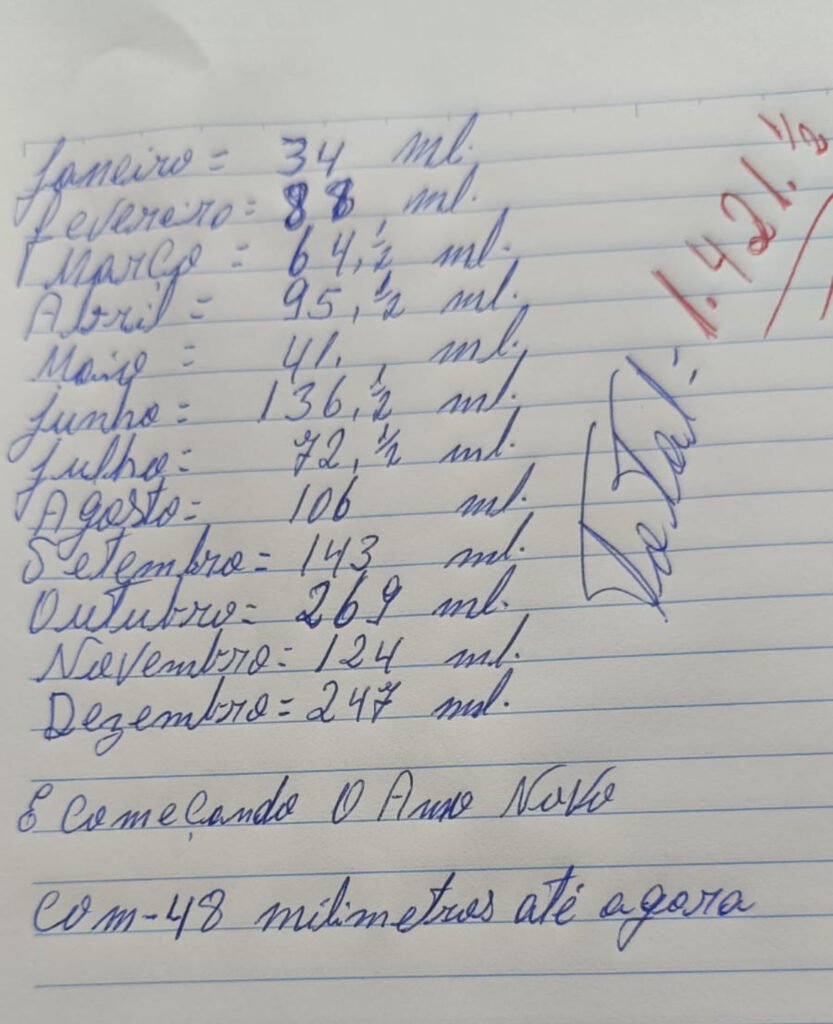 Janeiro = 34 ml.
Fevereiro = 88, ml.
Março = 64, ½ ml.
Abril = 95, ½ ml.
Maio = 41. ml.
Junho = 136, ½ ml.
Julho = 72, ½ ml.
Agosto = 106 ml.
Setembro = 143 ml.
Outubro = 269 ml.
Novembro = 124 ml.
Dezembro = 247 ml.
Total: 1.421. ½
E começando O Anno Novo
com - 48 milimetros até agora